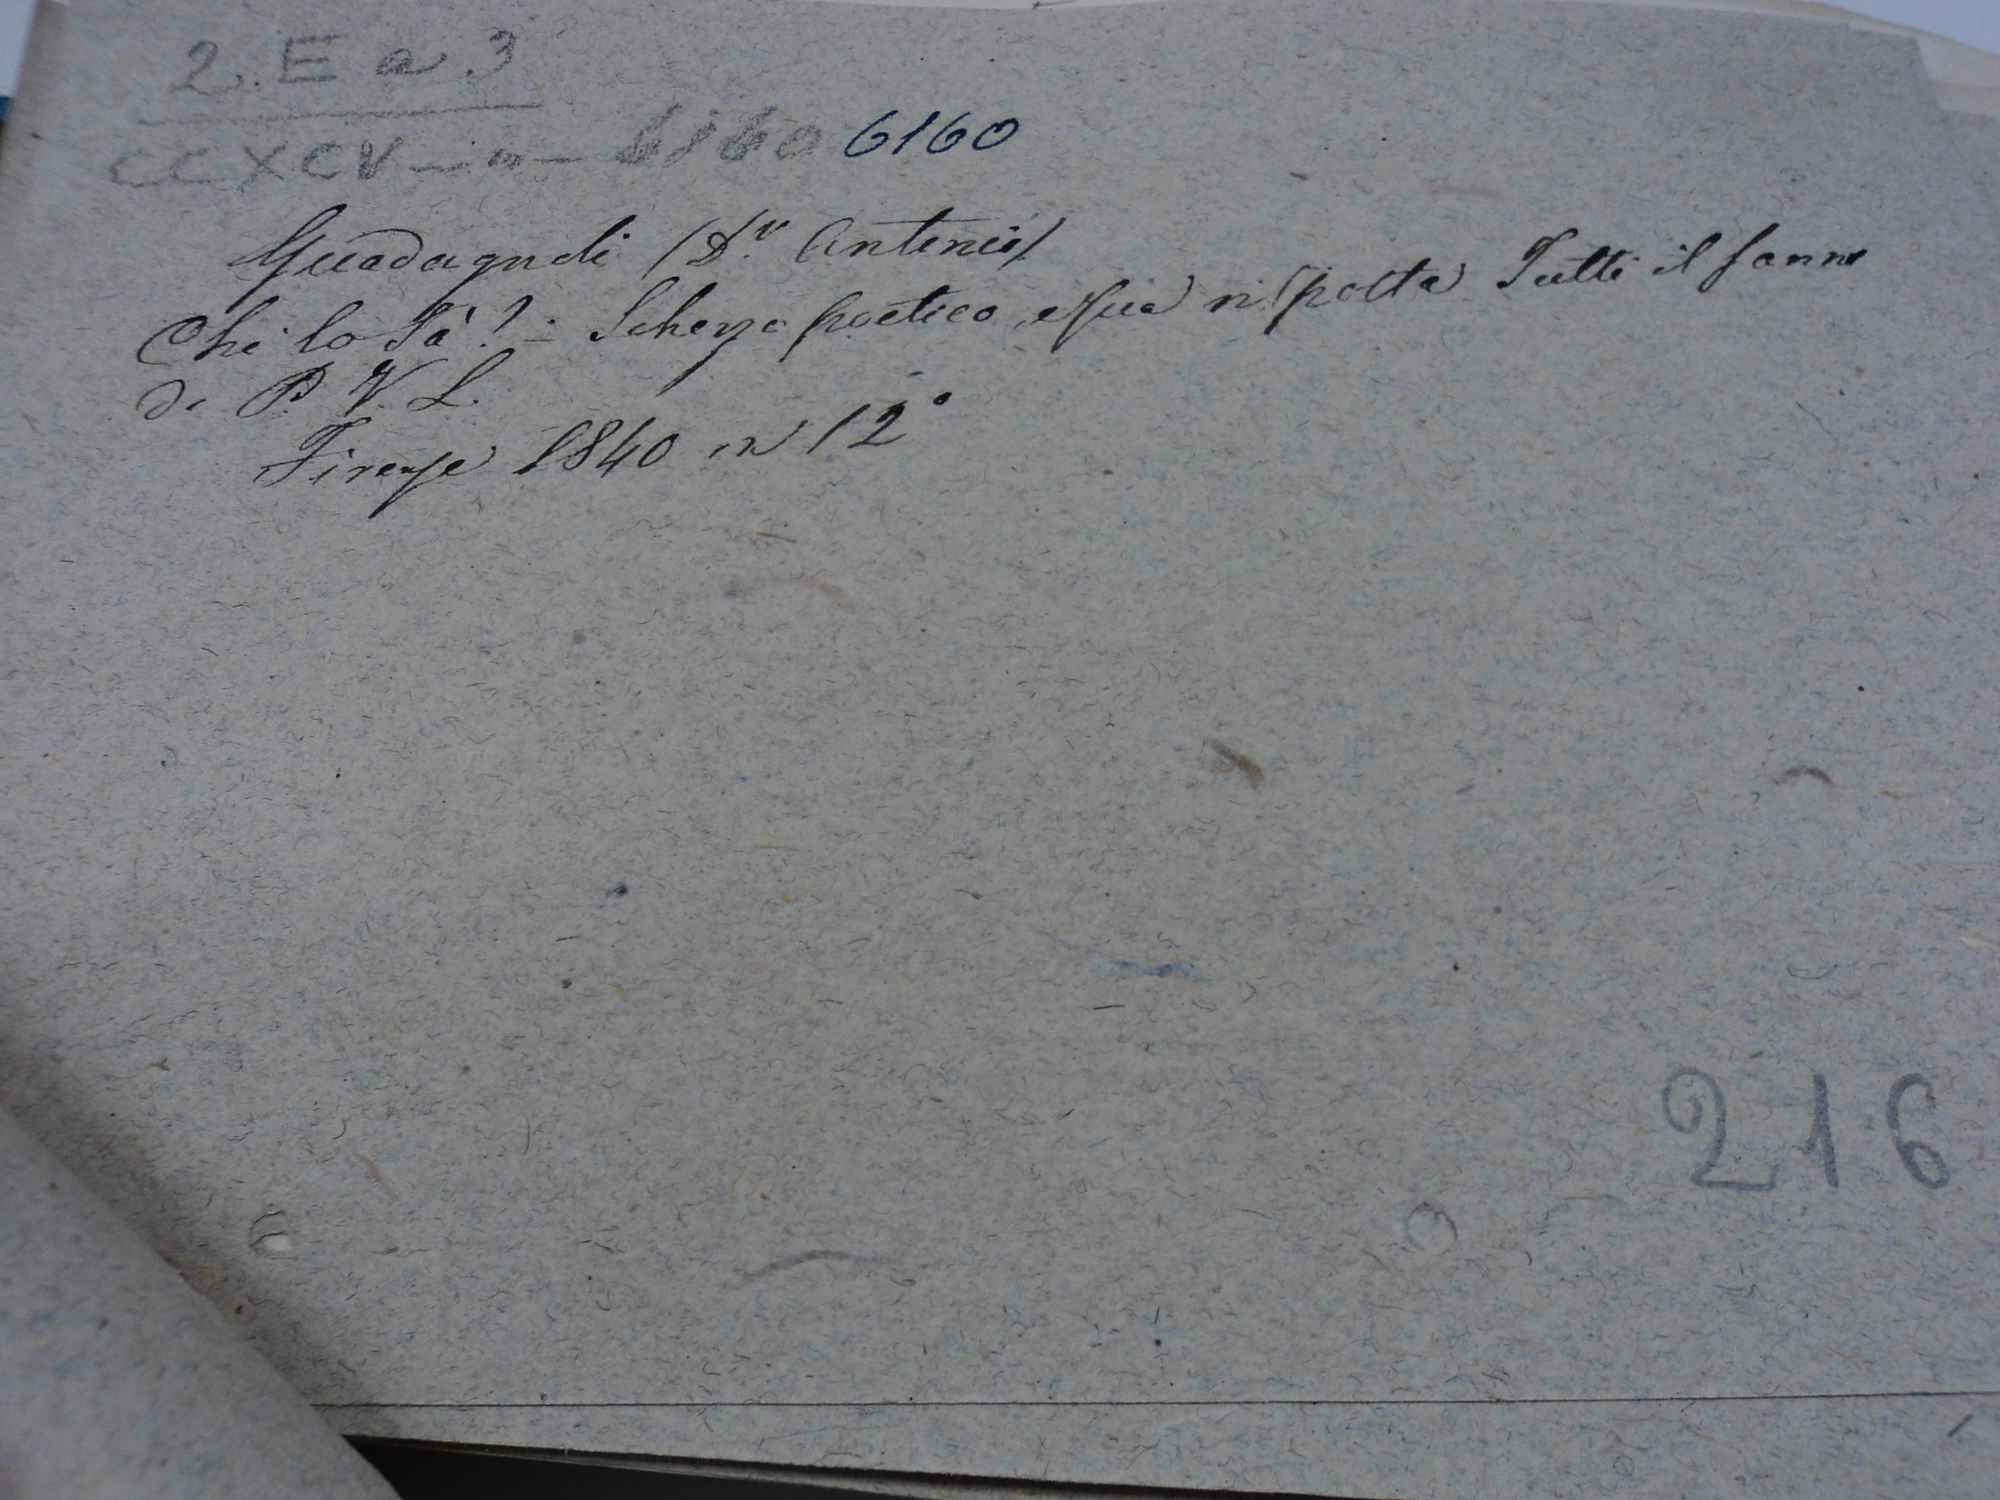 2. E a 3
CCXCV — n — 6160 6160
Guadagnoli (D.r Antonio)
Chi lo Sà? - Scherzo poetico, e sua risposta Tutti il sanno
di P. V. L.
Firenze 1840 in 12°
216